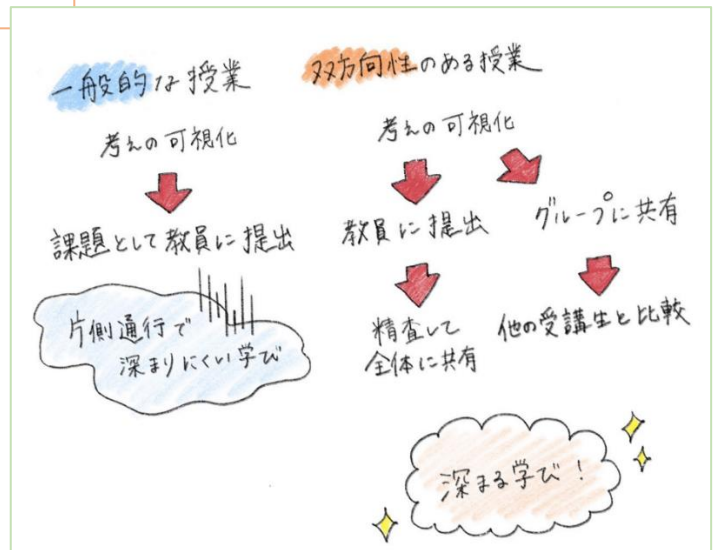 一般的な授業
考えの可視化
課題として教員に提出
片側通行で
深まりにくい学び
双方向性のある授業
考えの可視化
教員に提出
精査して
全体に共有
グループに共有
他の受講生と比較
深まる学び!